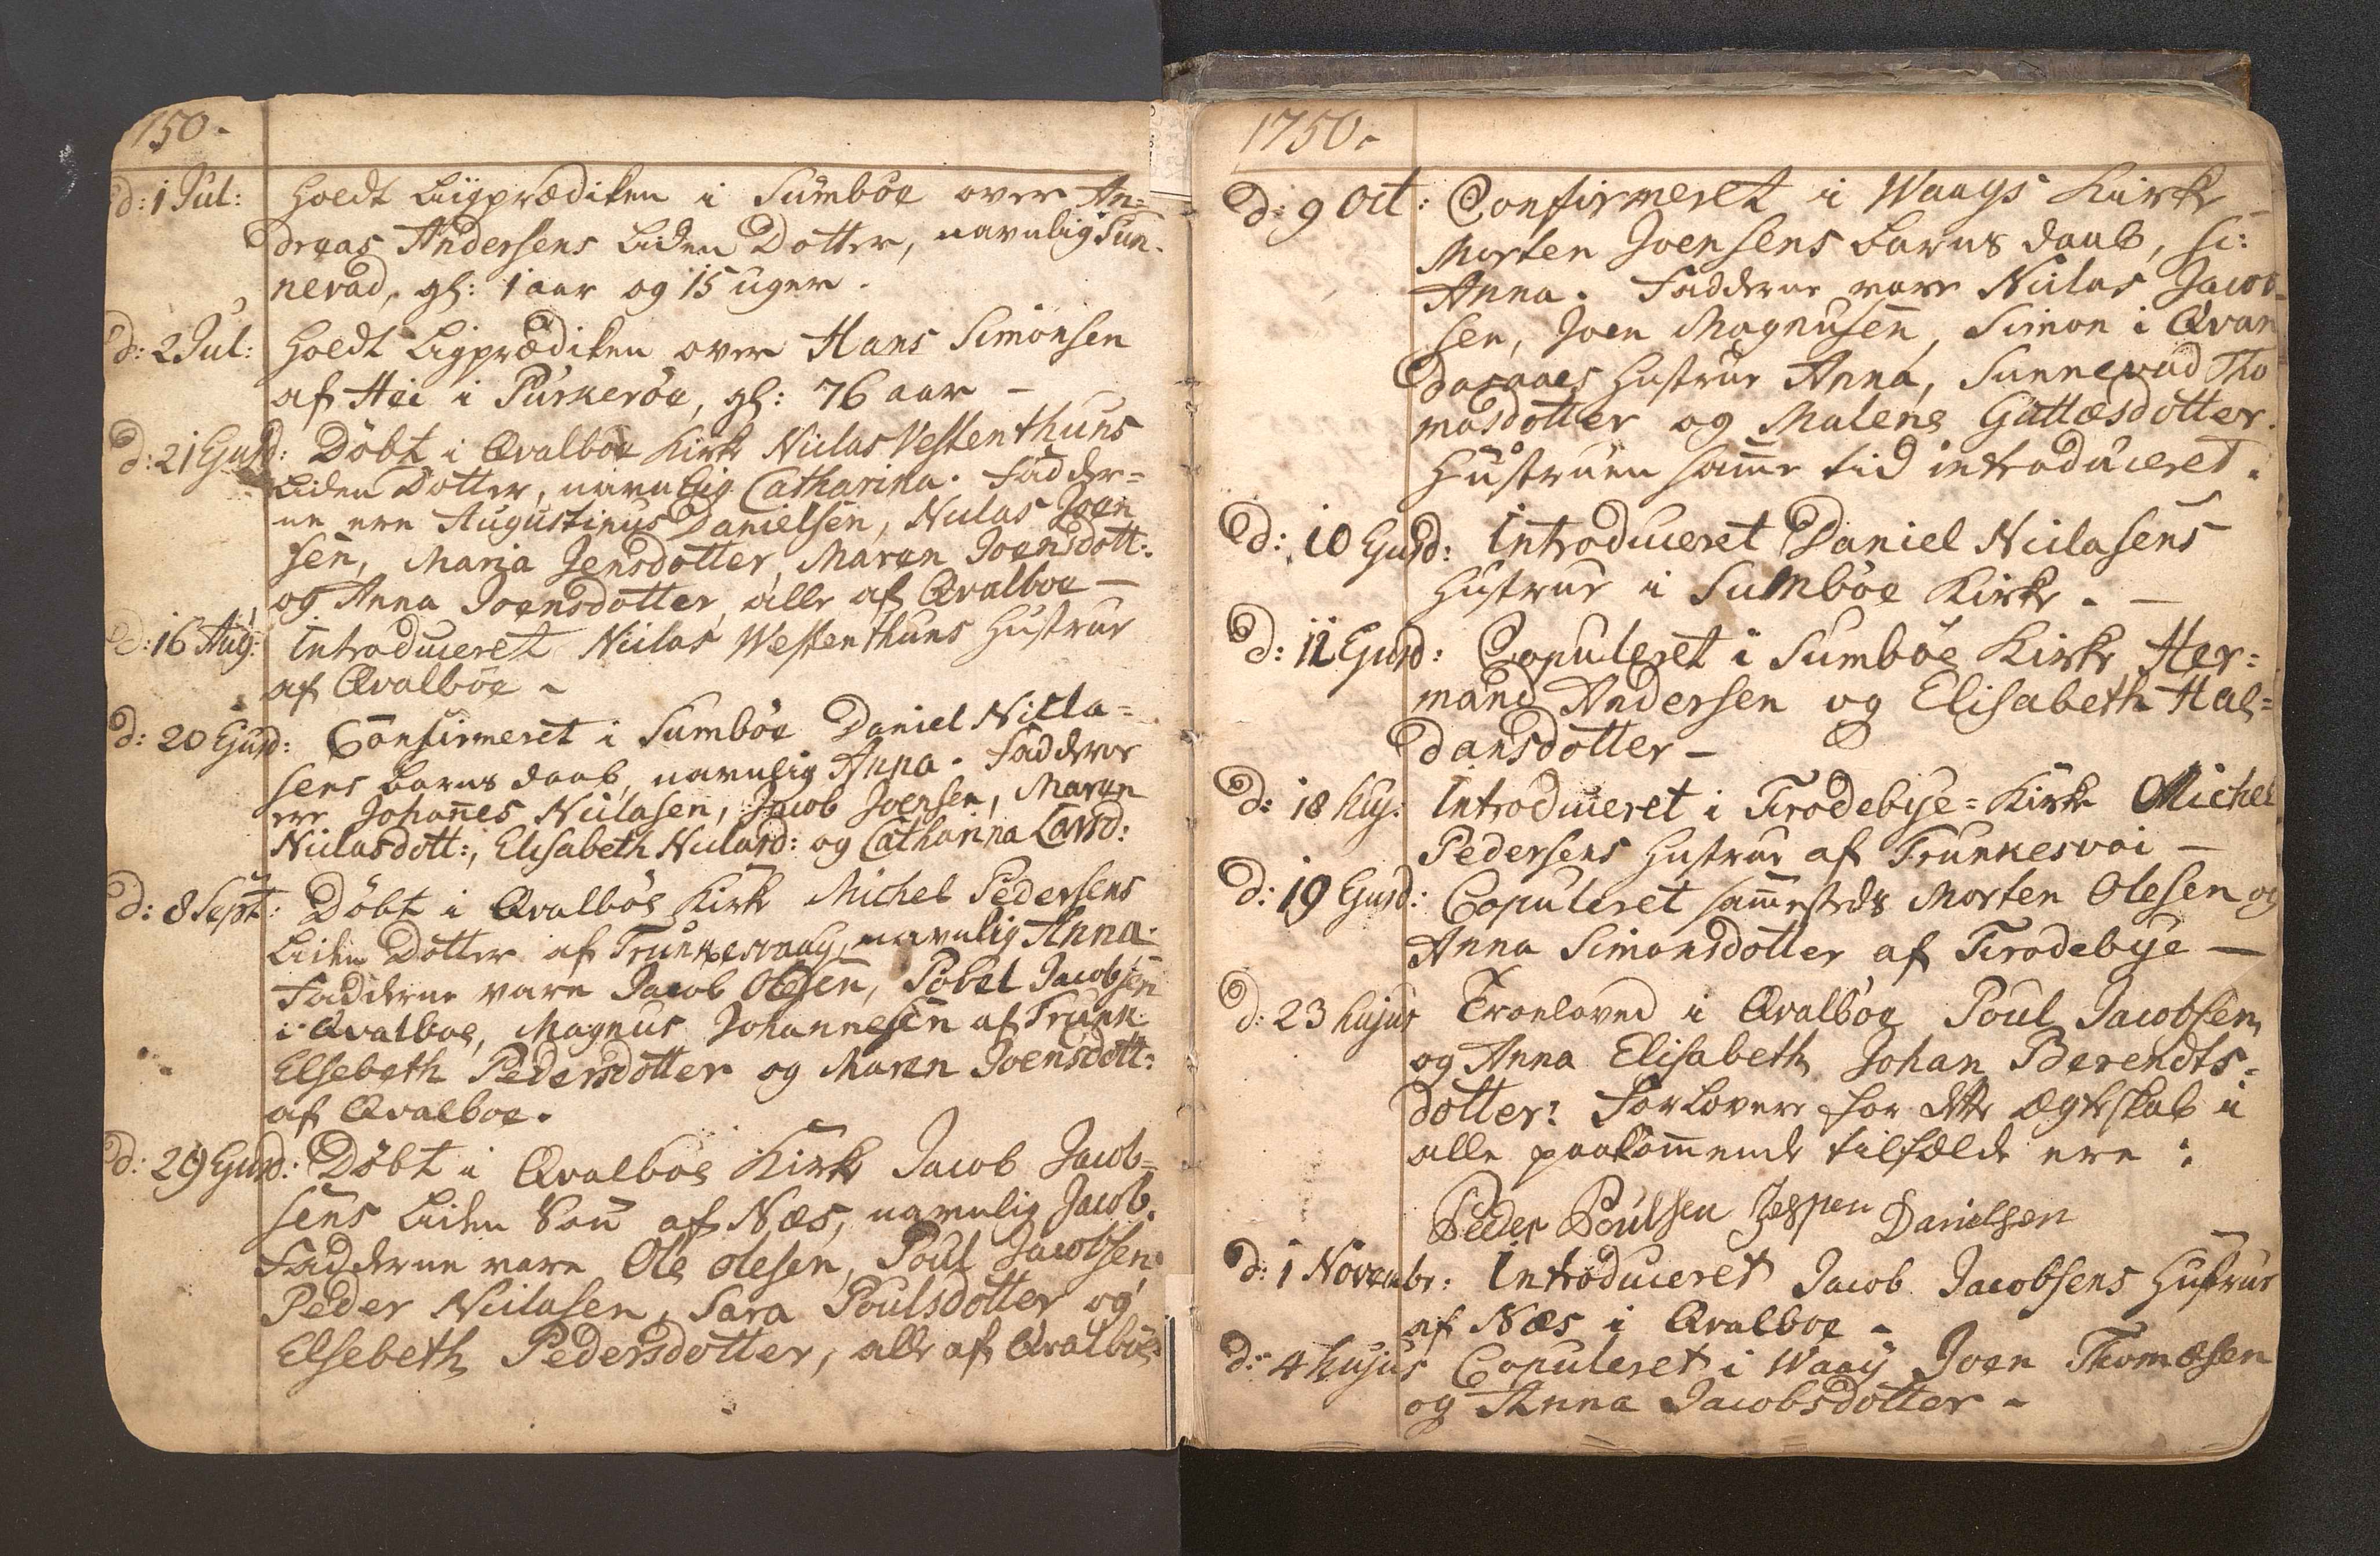 1750.
d: 1 Jul: Holdt Liigprædiken i Sumböe over An=
dreas Andersens liden Dotter, navnlig Sun-
nevad, gl: 1 aar og 15 uger.
d: 2 Jul: Holdt Ligprædiken over Hans Simonsen
af Hei i Purkeröe, gl: 76 aar –
d: 21 Ejusd: Döbt i Qvalböe Kirke Niclas Vestenthuns
liden Dotter, navnlig Catharina. Fadder=
ne ere Augustinus Danielsen, Niclas Joen
sen, Maria Jensdotter, Maren Joensdott:
og Anna Joensdotter, alle af Qvalboe –
d: 16 Aug: Introduceret Niclas Westenthuns Hustrue
af Qvalböe –
d: 20 Ejusd: Confirmeret i Sumböe Daniel Nicla=
sens barns daab, navnlig Anna. Faddere
ere Johannes Niclasen, Jacob Joensen, Maren
Niclasdott:, Elisabeth Niclasd: og Catharina Larsd:
d: 8 Sept: Döbt i Qvalböe Kirke Michel Pedersens
liden Dotter af Trunkesvaag, navnlig Anna.
Fadderne vare Jacob Olesen, Pobel Jacobsen
i Qvalboe, Magnus Johannesen af Trunk.
Elsebeth Pedersdotter og Maren Joensdott:
af Qvalboe.
d: 29 Ejusd: Döbt i Qvalboe Kirke Jacob Jacob=
sens liden Sön af Næs, navnlig Jacob.
Fadderne vare Ole Olesen, Poul Jacobsen,
Peder Niclasen, Sara Poulsdotter og
Elsebeth Pedersdotter, alle af Qvalböe
1750.
d: 9 Oct: Confirmeret i Waags Kirke
Morten Joensens barns daab, sc:
Anna. Fadderne vare Niclas Jacob=
sen, Joen Magnusen, Simon i Qvan
dasaaes Hustrue Anna, Sunnevad Tho
masdotter og Malene Guttæsdotter.
Hustruen samme tid introduceret.
d: 10 Ejusd: Introduceret Daniel Niclasens
Hustrue i Sumböe Kirke. –
d: 11 Ejusd: Copuleret i Sumböe Kirke Her=
mand Andersen og Elisabeth Hal=
dansdotter –
d: 18 huj: Introduceret i Frodebye=Kirke Michel
Pedersens Hustrue af Trunkesvai –
d: 19 Ejusd: Copuleret sammesteds Morten Olesen og
Anna Simonsdotter af Frodebye –
d: 23 hujus Troeloved i Qvalböe Poul Jacobsen,
og Anna Elisabeth Johan Berendts=
dotter: Forlovere for dette ægteskab i
alle paakommende tilfælde ere:
Peder Poulsen Jesper Danielsen
d: 1 Novembr: Introduceret Jacob Jacobsens Hustrue
af Næs i Qvalboe –
d: 4 hujus Copuleret i Waag Joen Thomæsen
og Anna Jacobsdotter –